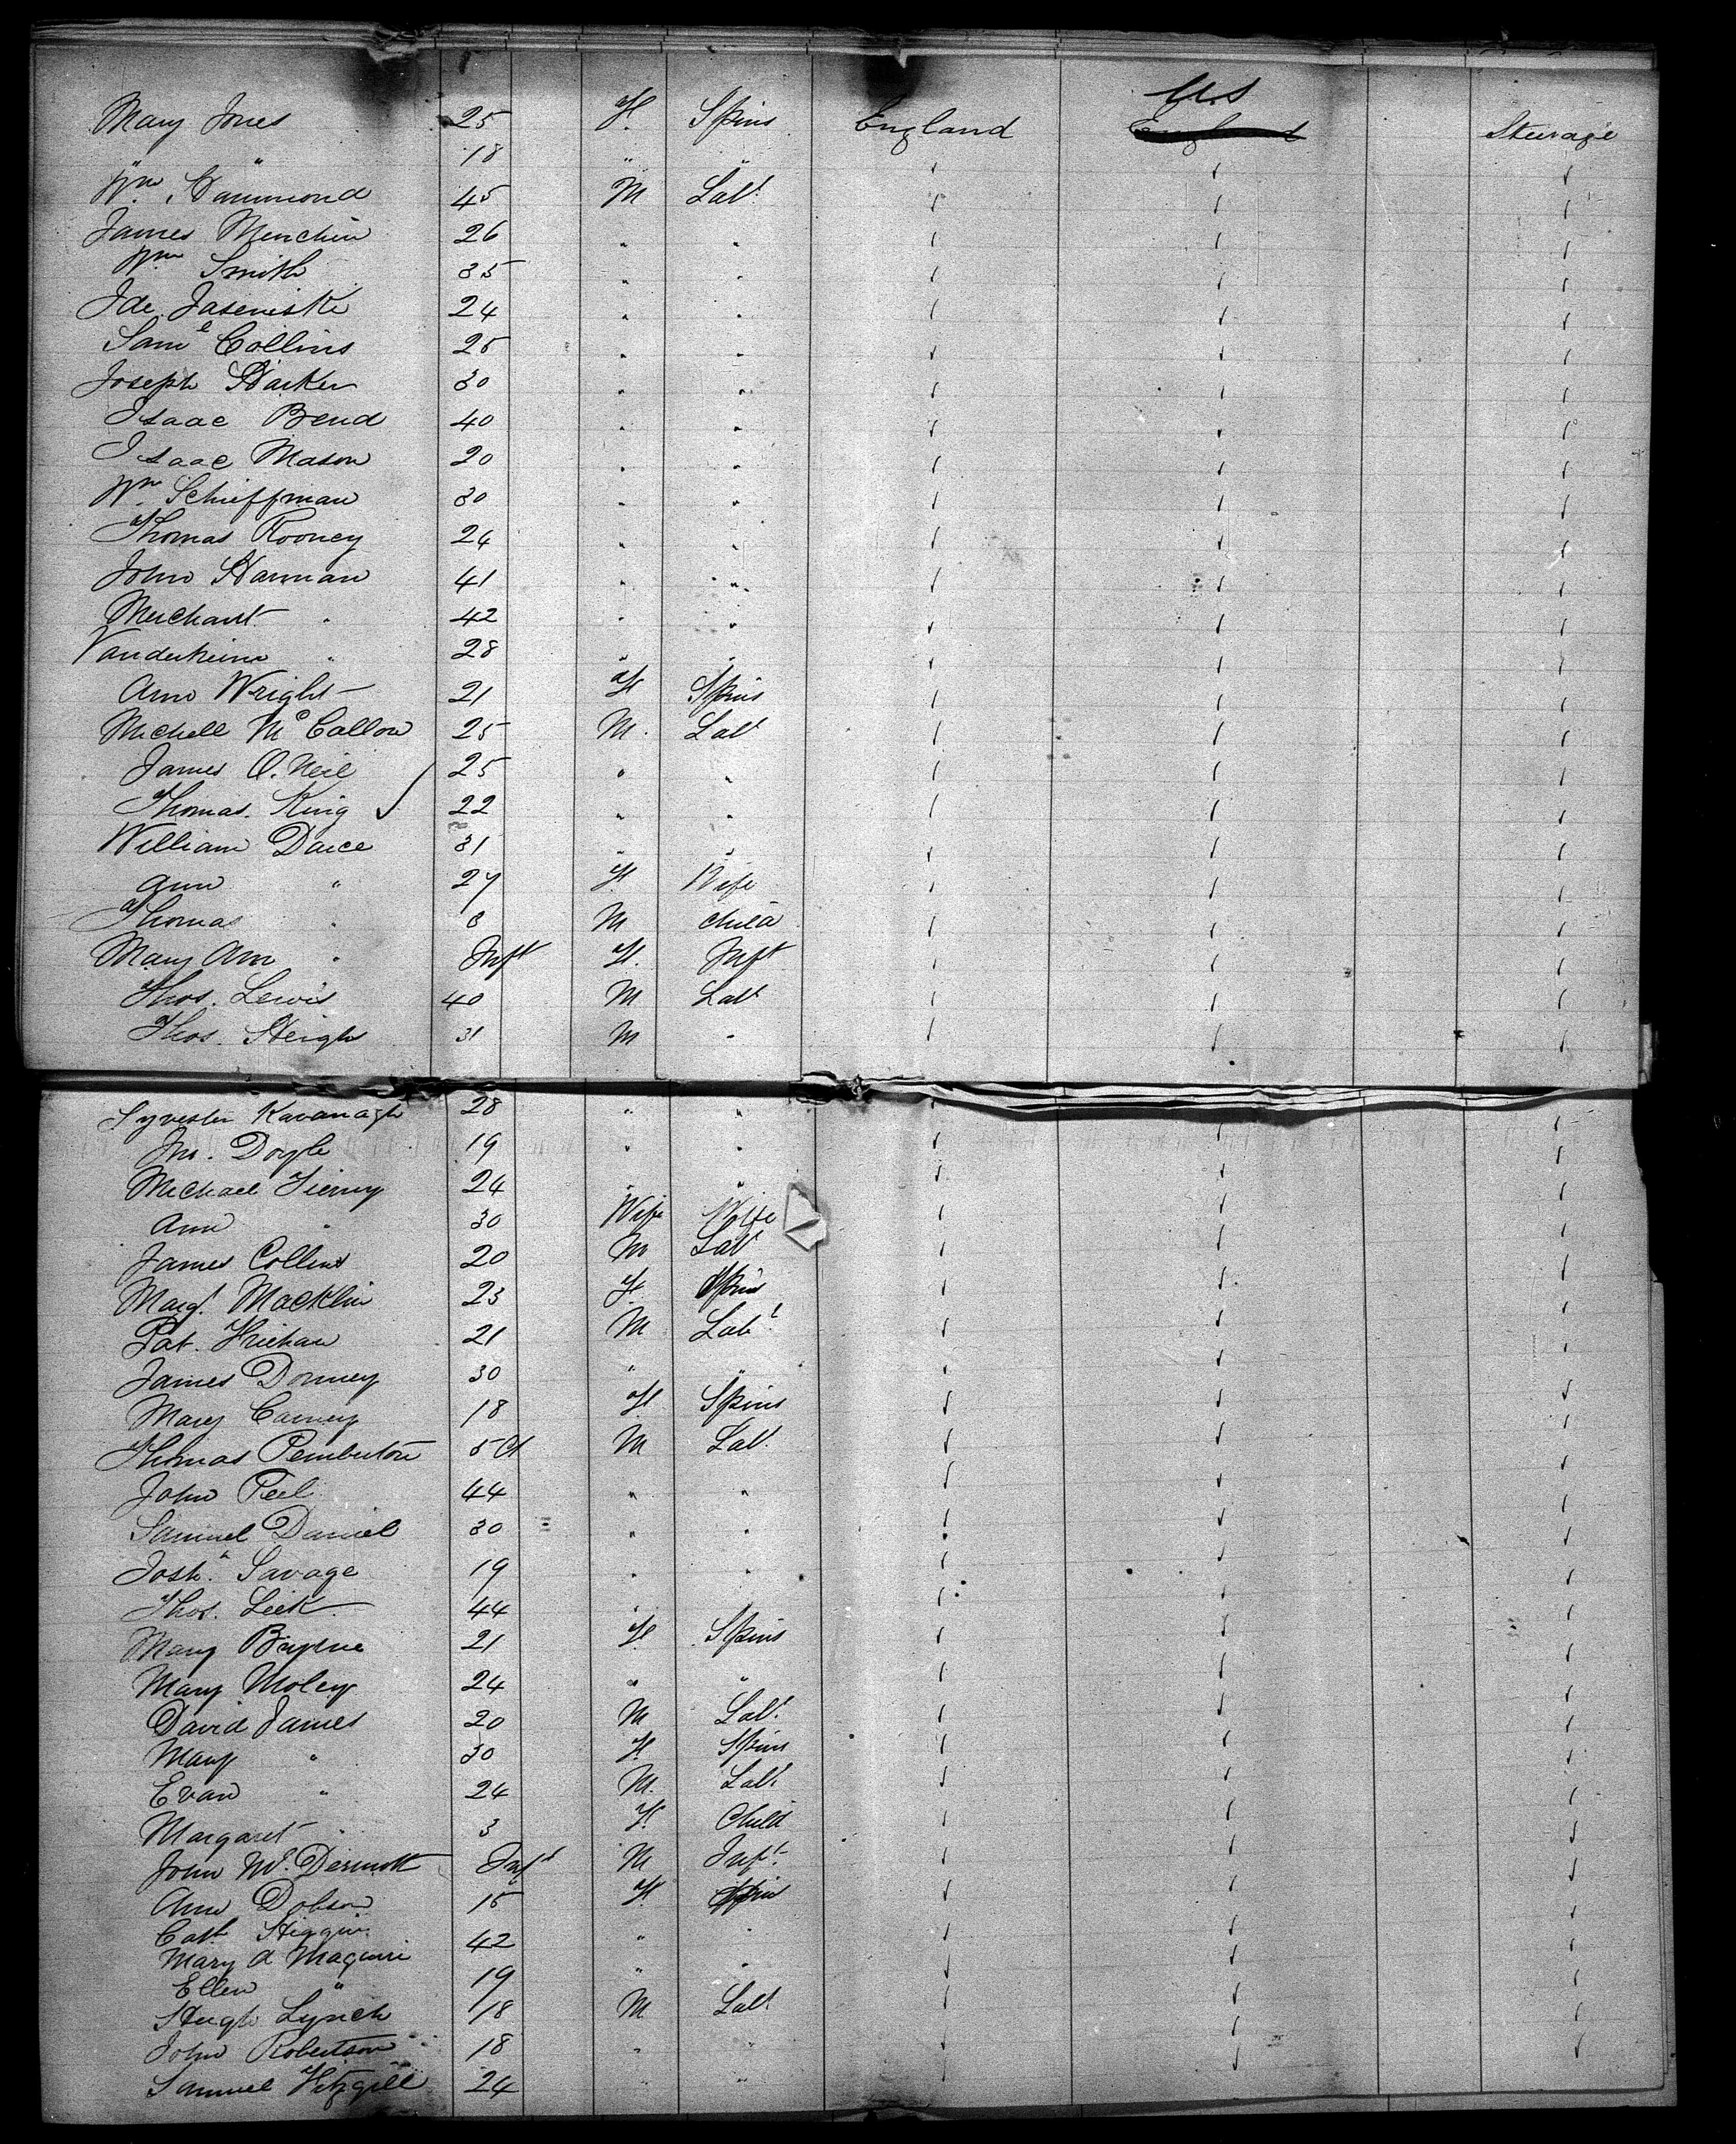 U.S
Mary Jones 25 F. Spins England England Steerage
" " 18 " "
Wm. Hammond 45 M Labr
James Menchin 26 " "
Wm Smith 35 " "
Jde. Jaseniski 24 " "
Saml Collins 25 " "
Joseph Harker 30 " "
Isaac Bend 40 " "
Isaac Mason 20 " "
Wm Schieffman 30 " "
Thomas Rooney 24 " "
John Harman 41 " "
Merchant " 42 " "
Vanderheim " 28 " "
Ann Wright 21 F Spins
Michell McCallow 25 M. Labr
James O.Neil 25 " "
Thomas. King 22 " "
William Daice 31 " "
Ann " 27 F Wife
Thomas " 8 M child
Mary Ann " Inft F. Inft
Thos. Lewis 40 M Labr
Thos. Heigh 31 M "
Sylvester Kavanagh 28 " "
Jno. Doyle 19 " "
Michael Tierny 24 " "
Ann " 30 Wife Wife
James Collins 20 M Labr
Margt. Macklin 23 F Spins
Pat. 21 M Labr.
James Donney 30 " "
Mary Carney 18 F Spins
Thomas Pemberton 50 M Labr.
John Peel 44 " "
Samuel Daniel 30 " "
Josh. Savage 19 " "
Thos. Leek 44 "
Mary Bayrne 21 F. Spins
Mary Moley 24 " "
David James 20 M Labr.
Mary " 30 F Spins
Evan " 24 M. Labr
Margaret " 3 F. Child
John McDermott Inft M Inft.
Ann Dobson 15 F. Spins
Cath Higgin 42 " "
Mary A Maguire
Ellen " 19 " "
Hugh Lynch 18 M Labr
John Robertson 18 " "
Samuel Fitzgill 24 " "